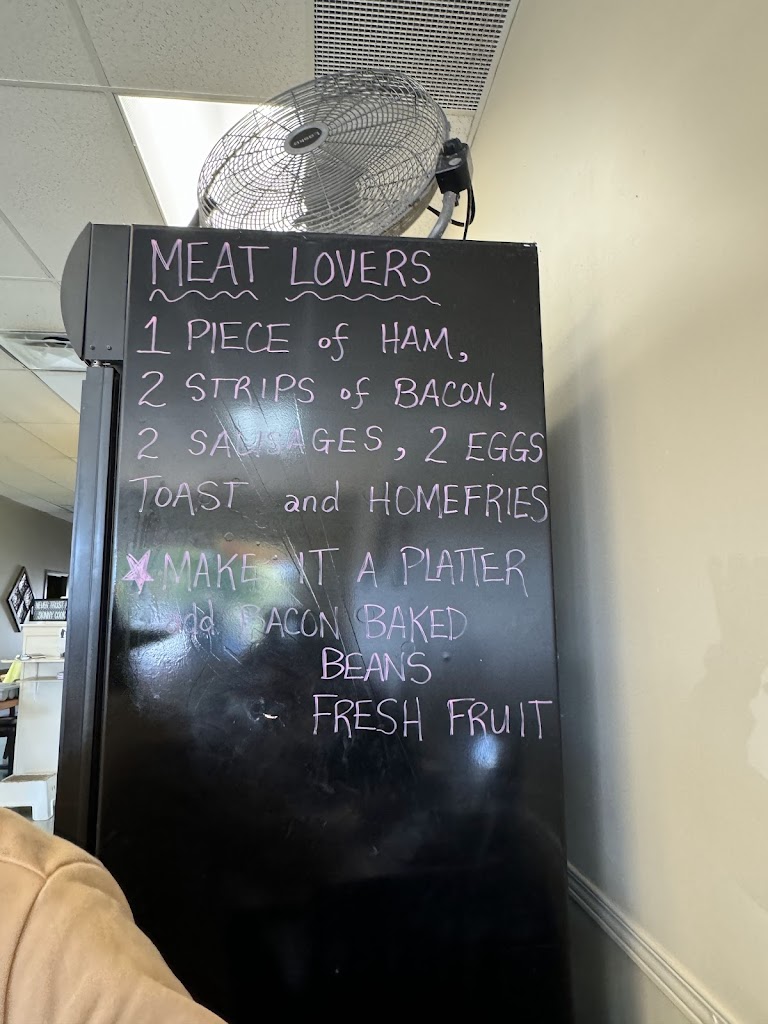 MEAT LOVERS
1 PIECE of HAM,
2 STRIPS of BACON,
2 SAUSAGES, 2 EGGS
TOAST and HOMEFRIES
MAKE IT A PLATTER
add BACON BAKED
BEANS
FRESH FRUIT
NEVER TRUST A
SKINNY COOK
LASKO